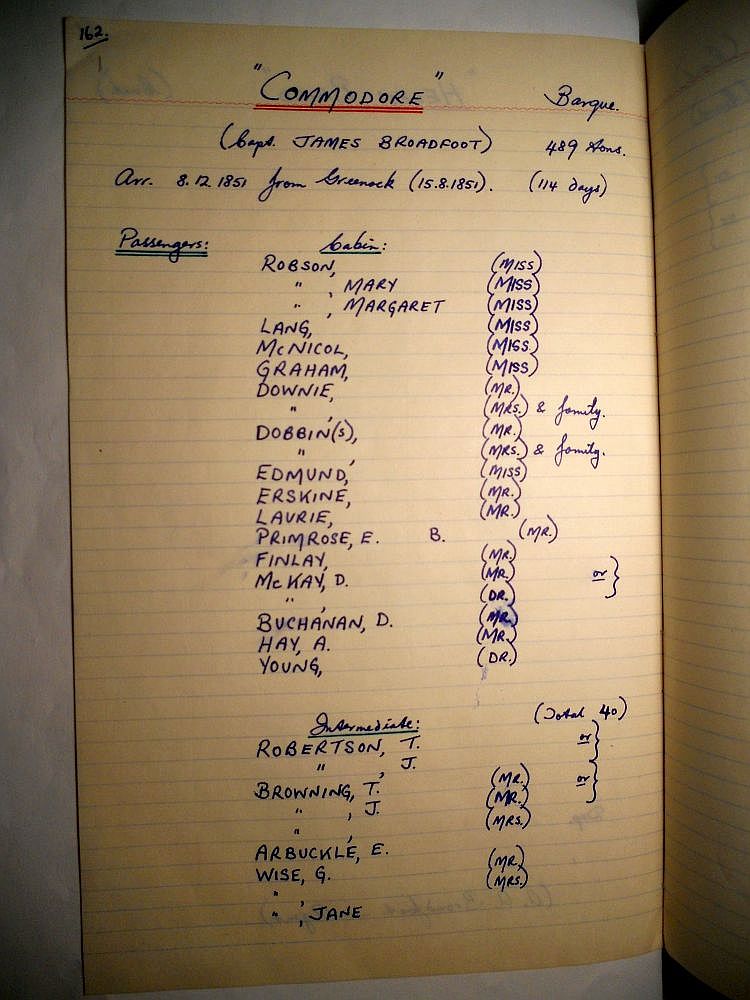 162.
"COMMODORE" Barque.
(Capt. JAMES BROADFOOT) 489 tons.
Arr. 8.12.1851 from Greenock (15.8.1851). (114 days)
Passengers: Cabin:
ROBSON, (MISS)
" , MARY (MISS)
" , MARGARET (MISS)
LANG, (MISS)
McNICOL, (MISS)
GRAHAM, (MISS)
DOWNIE, (MR.)
" , (MRS.) & family.
DOBBIN(S), (MR.)
" , (MRS.) & family.
EDMUND, (MISS)
ERSKINE, (MR.)
LAURIE, (MR.)
PRIMROSE, E. B. (MR.)
FINLAY, (MR.)
McKAY, D. (MR.) or }
" , (DR.)
BUCHANAN, D. (MR.)
HAY, A. (MR.)
YOUNG, (DR.)
Intermediate: (Total 40)
ROBERTSON, T. or }
" , J.
BROWNING, T. (MR.) or }
" , J. (MR.)
" , (MRS.)
ARBUCKLE, E.
WISE, G. (MR.)
" , (MRS.)
" , JANE